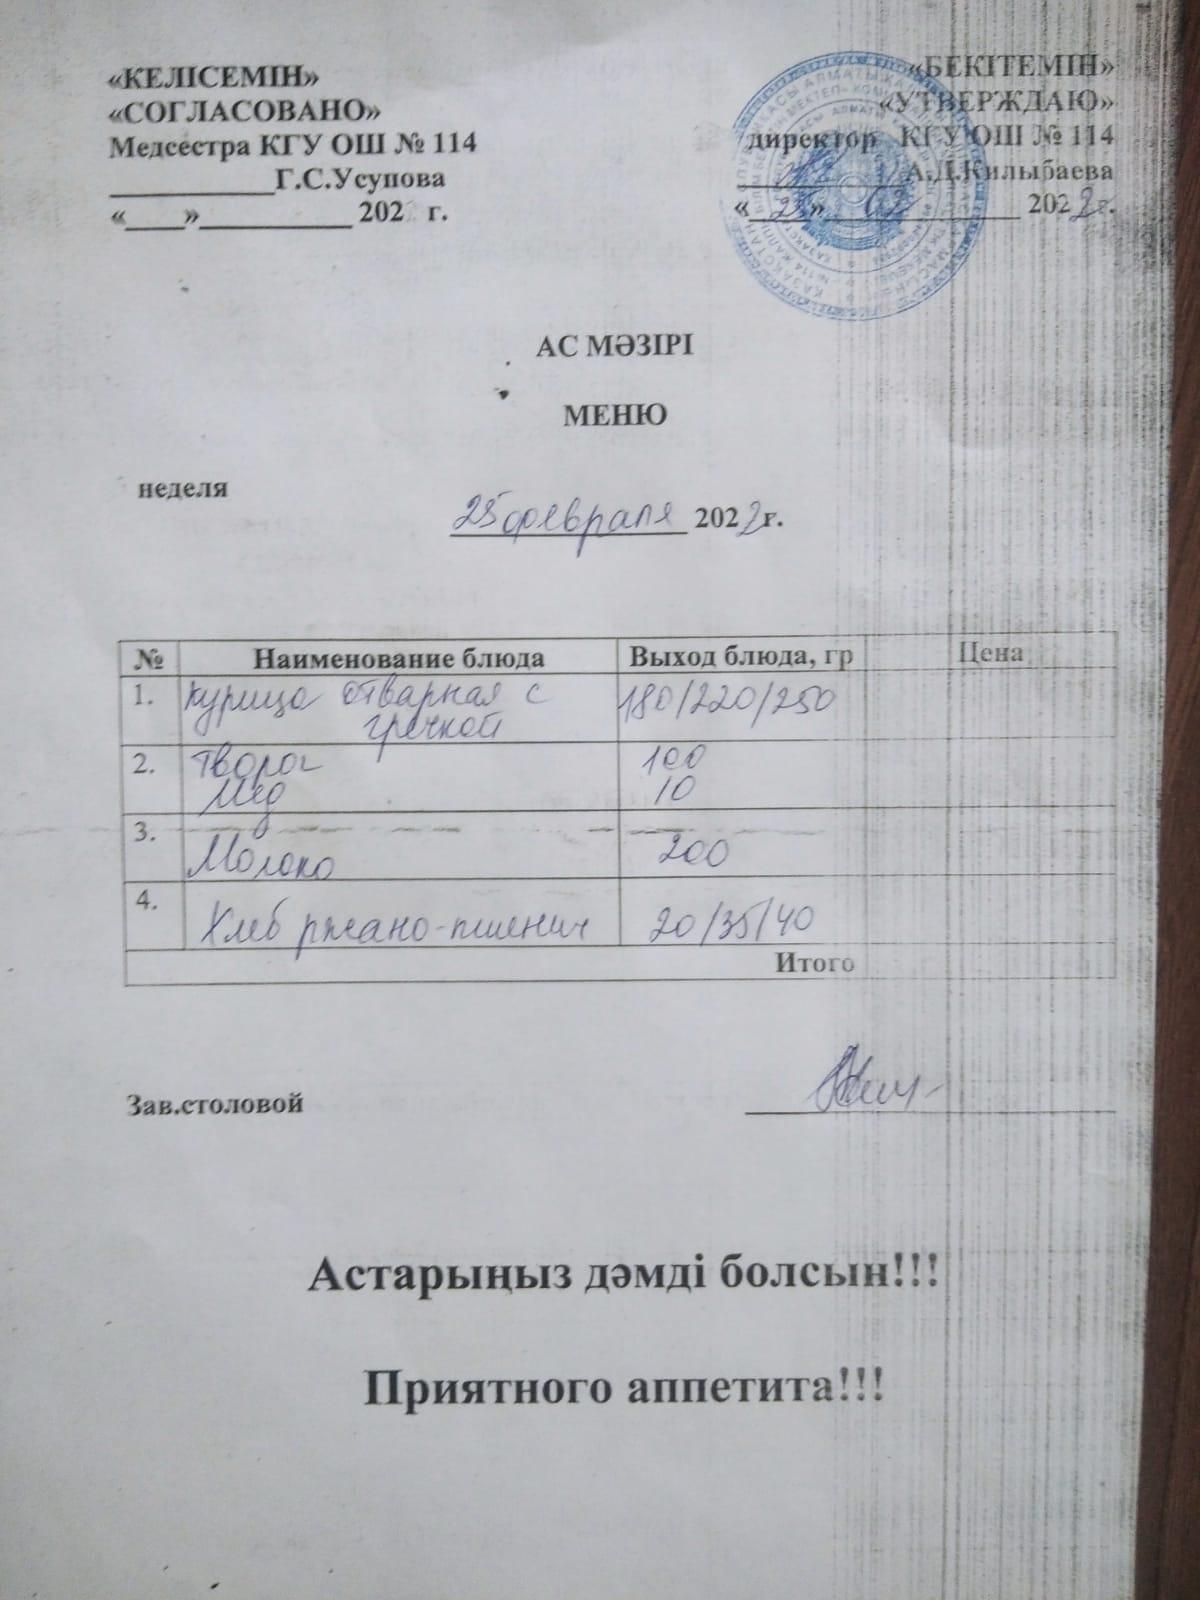 «КЕЛІСЕМІН»
«СОГЛАСОВАНО»
Медсестра КГУ ОШ № 114
___________Г.С.Усупова
«____»__________ 202 г.
«БЕКІТЕМІН»
«УТВЕРЖДАЮ»
директор КГУ ОШ № 114
А.Д.Килыбаева
« » 02 2022г.
АС МӘЗІРІ
МЕНЮ
неделя
25 февраля 2022г.
№ Наименование блюда Выход блюда, гр Цена
1. Курица отварная с 180/220/250
гречкой
2. Творог 100
Мед 10
3.
Молоко 200
4.
Хлеб ржано-пшенич 20/35/40
Итого
Зав.столовой
Астарыңыз дәмді болсын!!!
Приятного аппетита!!!